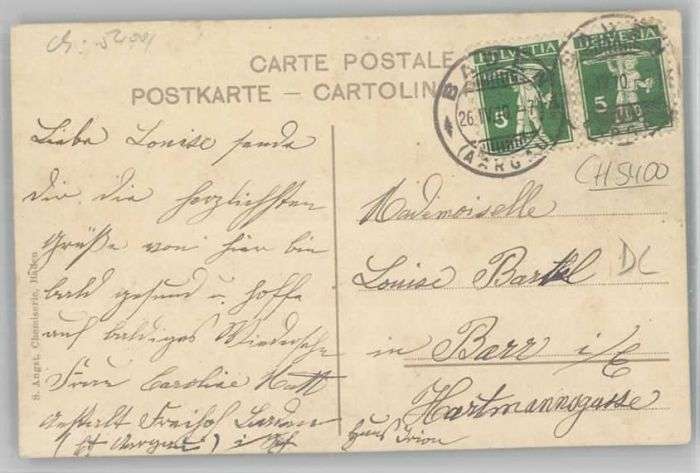 ch: 5400
CARTE POSTALE
POSTKARTE — CARTOLINA
HELVETIA
5
HELVETIA
5
BADEN
26.IV.10
(AARGAU)
CH5400
DC
Liebe Louise sende
Dir die herzlichsten
Grüße von hier bin
bald gesund u. hoffe
auf baldiges Wiedersehn
Frau Caroline
Anstalt Freihof Baden
(Kt Aargau) i/
Mademoiselle
Louise Bartel
in Barr i/E
Hartmannsgasse
Haus
S. Angst, Chemiserie, Baden